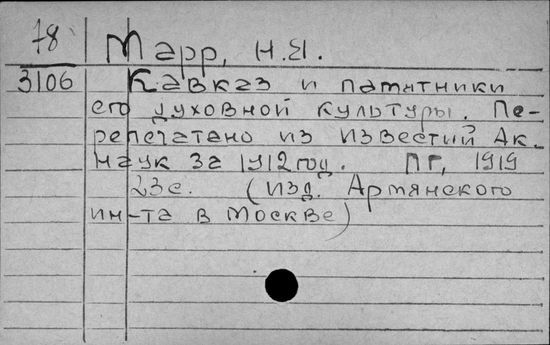 78 Марр, Н.Я.
3106 Кавказ и памятники
его духовной культуры. Пе-
репечатано из Известий Ак.
Наук за 1912 год. ПГ, 1919
23с. (изд. Армянского
ин-та в Москве)